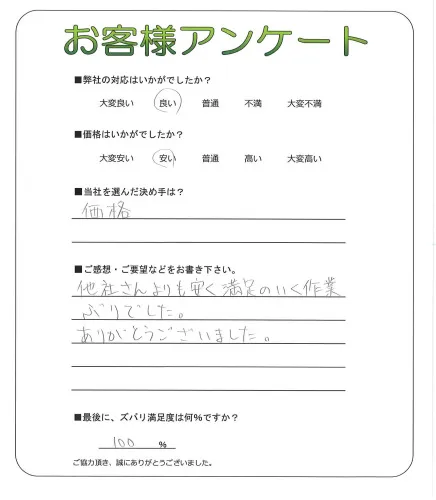 お客様アンケート
■弊社の対応はいかがでしたか？
大変良い 良い 普通 不満 大変不満
■価格はいかがでしたか？
大変安い 安い 普通 高い 大変高い
■当社を選んだ決め手は？
価格
■ご感想・ご要望などをお書き下さい。
他社さんよりも安く満足のいく作業
ぶりでした。
ありがとうございました。
■最後に、ズバリ満足度は何%ですか？
100 %
ご協力頂き、誠にありがとうございました。